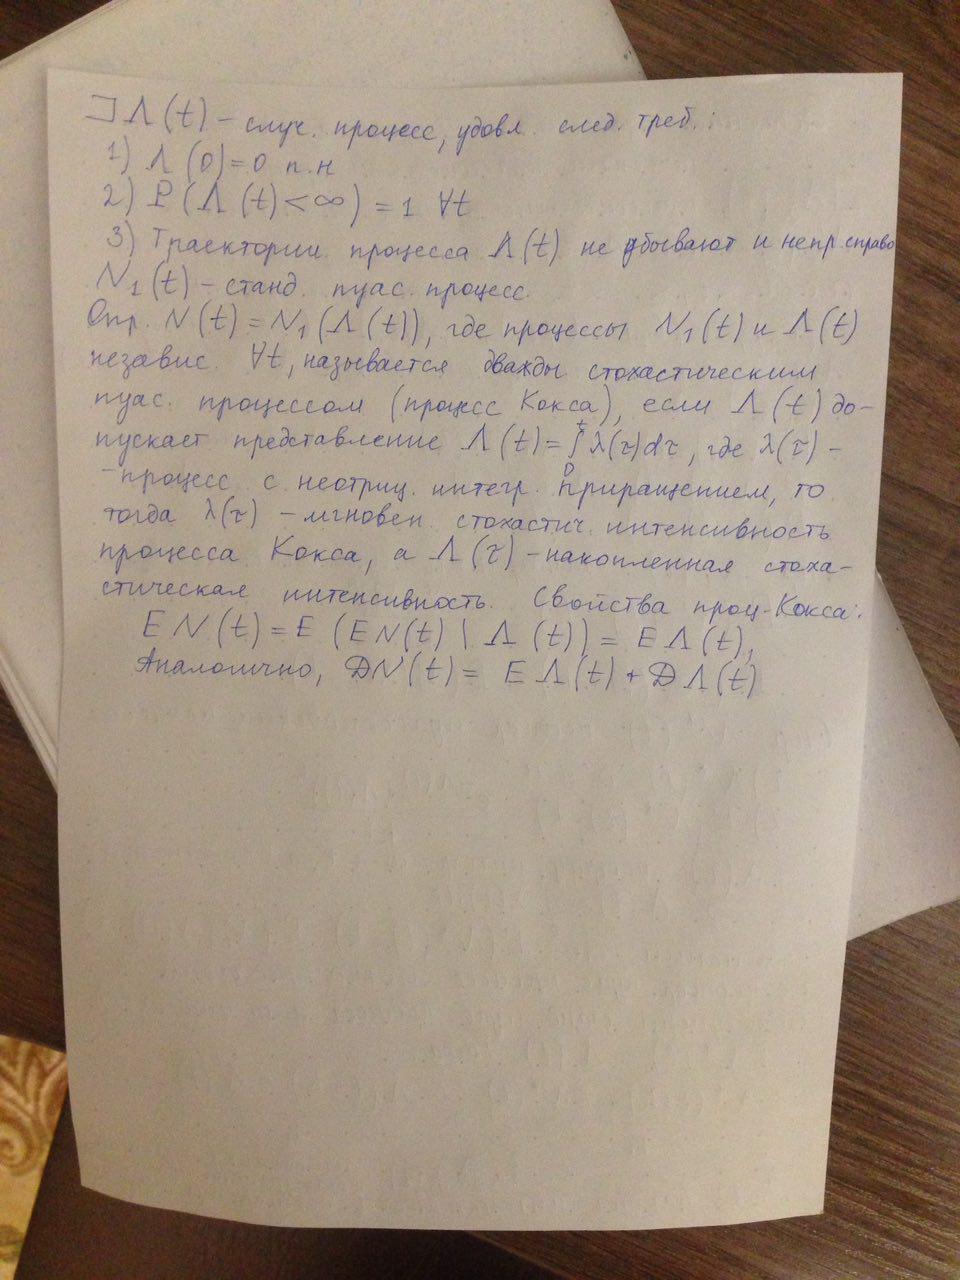 ∃ Λ(t) – случ. процесс, удовл. след. треб.:
1) Λ(0)=0 п.н
2) P(Λ(t)<∞) = 1 ∀t
3) Траектории процесса Λ(t) не убывают и непр. справо
N₁(t) – станд. пуас. процесс.
Опр. N(t) = N₁(Λ(t)), где процессы N₁(t) и Λ(t)
независ. ∀t, называется дважды стохастическим
пуас. процессом (процесс Кокса), если Λ(t) до-
пускает представление Λ(t)=∫₀ᵗ λ(τ)dτ, где λ(τ) –
-процесс с неотриц. интегр. приращением, то
тогда λ(τ) – мгновен. стохастич. интенсивность
процесса Кокса, а Λ(τ) – накопленная стоха-
стическая интенсивность. Свойства проц-Кокса:
EN(t) = E(EN(t) | Λ(t)) = EΛ(t),
Аналогично, DN(t) = EΛ(t) + DΛ(t)